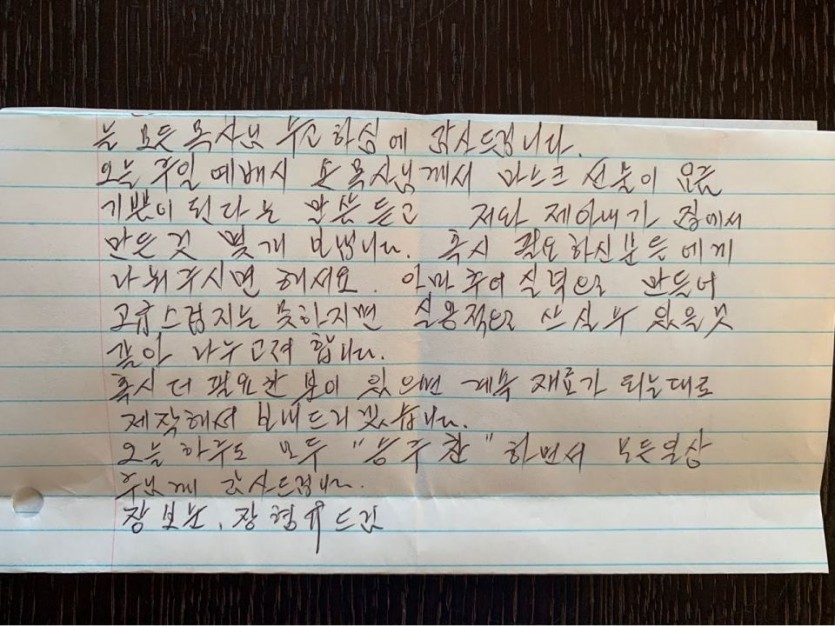 늘 모든 목사님 수고하심에 감사드립니다.
오늘 주일 예배시 손 목사님께서 마스크 선물이 요즘
기쁨이 된다는 말씀 듣고 저와 제아내가 집에서
만든것 몇개 보냅니다. 혹시 필요하신분들에게
나눠주시면 해서요. 아마추어 실력으로 만들어
고급스럽지는 못하지만 실용적으로 쓰실수 있을것
같아 나누고져 합니다.
혹시 더 필요한 분이 있으면 계속 재료가 되는대로
제작해서 보내드리겠습니다.
오늘 하루도 모두 "승주찬" 하면서 모든일상
주님께 감사드립니다.
장 드림